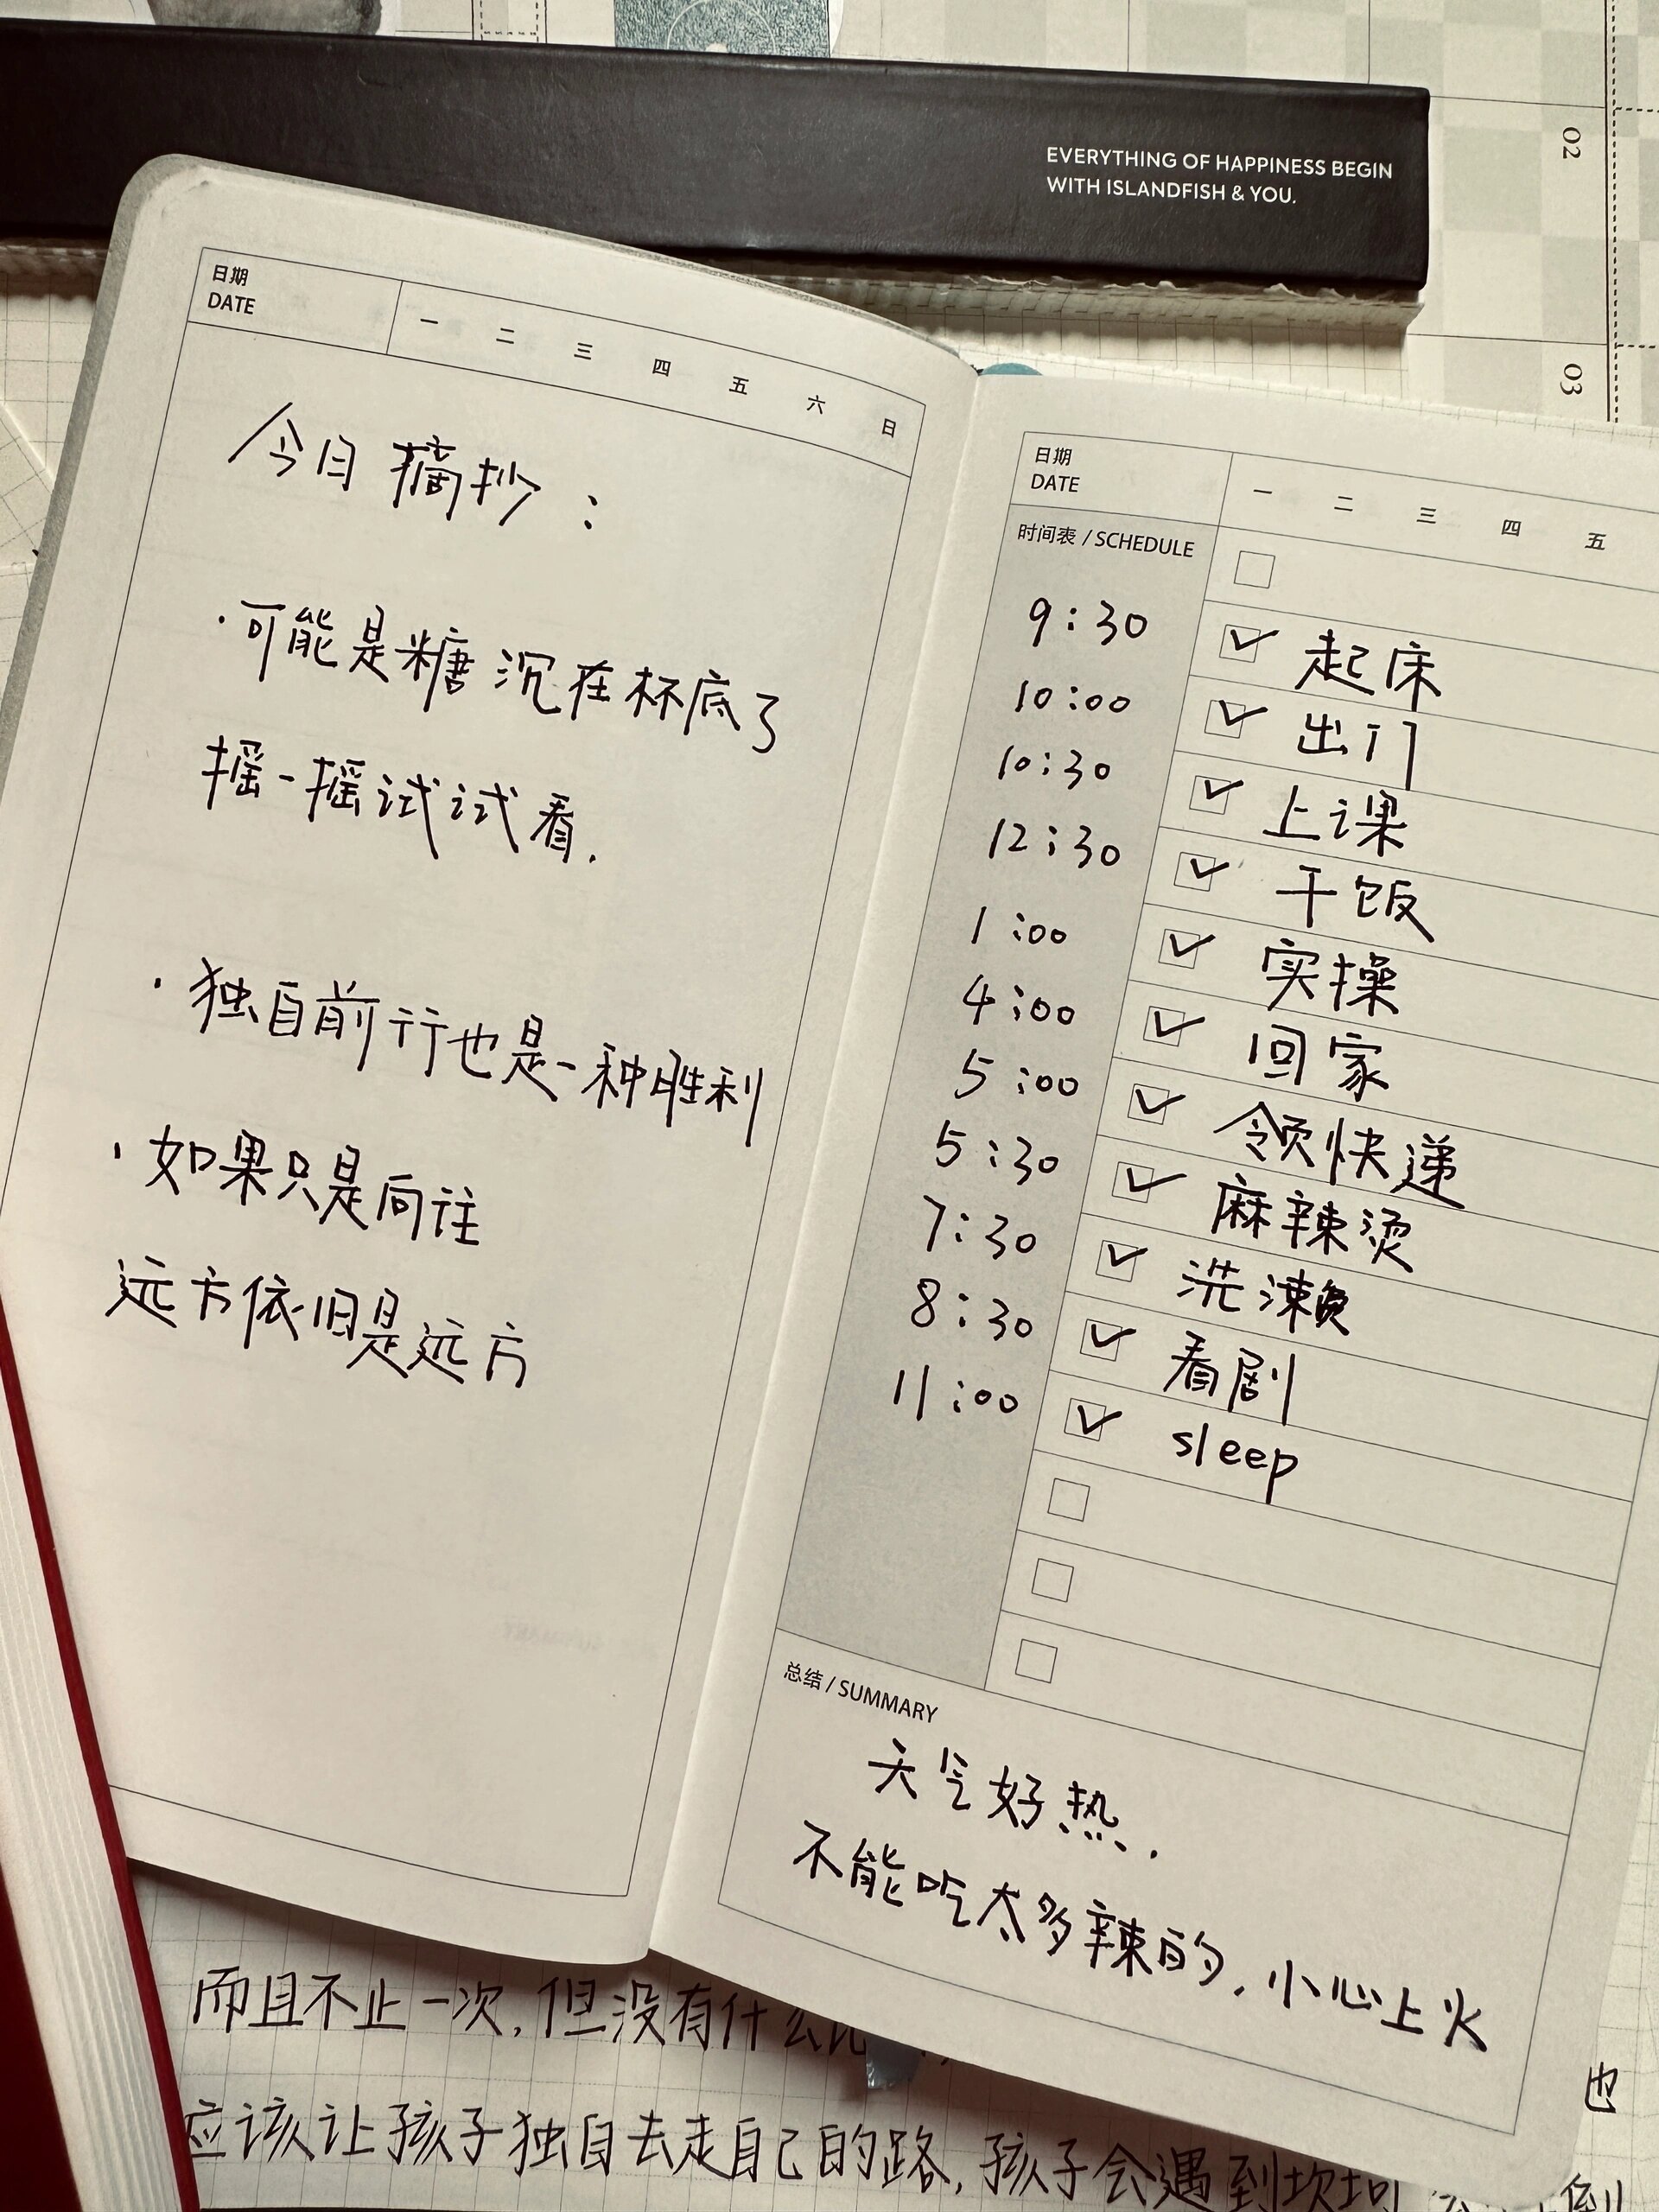 EVERYTHING OF HAPPINESS BEGIN
WITH ISLANDFISH & YOU.
02
03
日期
DATE
一 二 三 四 五 六 日
今日摘抄：
·可能是糖沉在杯底了
摇一摇试试看.
·独自前行也是一种胜利
·如果只是向往
远方依旧是远方
日期
DATE
一 二 三 四 五
时间表 / SCHEDULE
9:30 起床
10:00 出门
10:30 上课
12:30 干饭
1:00 实操
4:00 回家
5:00 领快递
5:30 麻辣烫
7:30 洗漱
8:30 看剧
11:00 sleep
总结 / SUMMARY
天气好热.
不能吃太多辣的,小心上火
而且不止一次,但没有什么 也
应该让孩子独自去走自己的路,孩子会遇到坎坷 倒